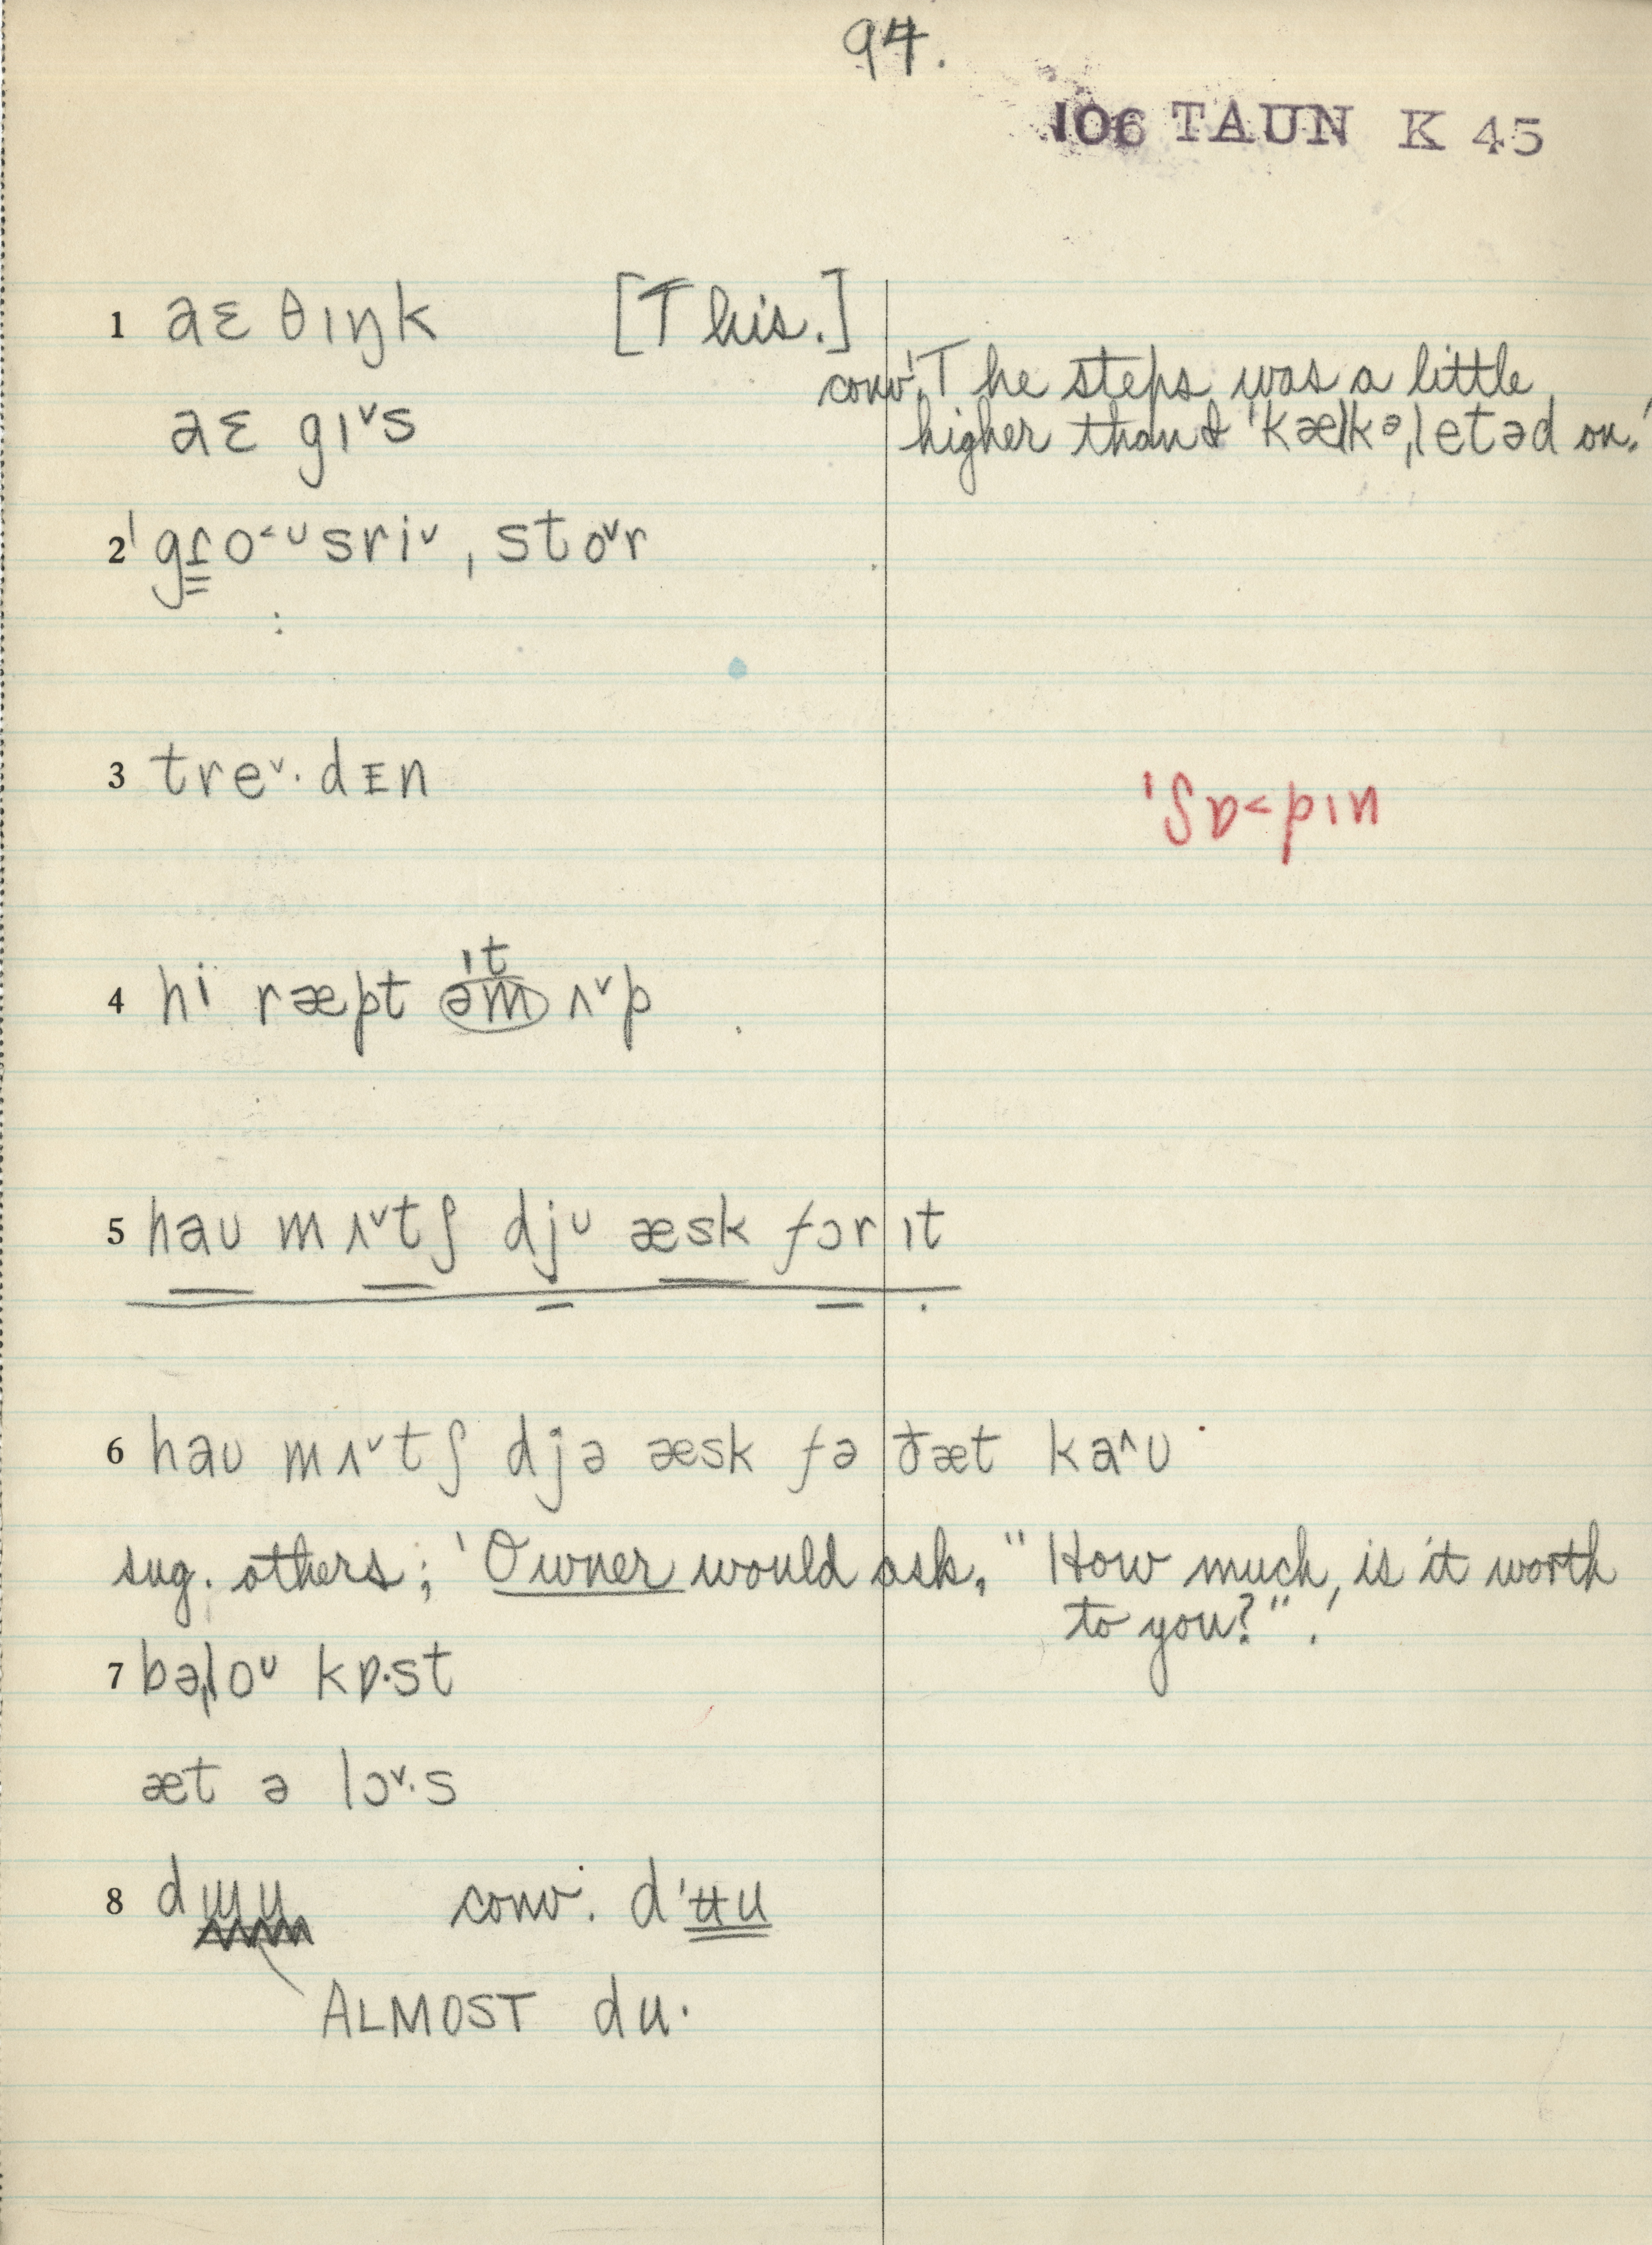 94.
106 TAUN K 45
1 aɛ θɪŋk [This.]
conv. 'The steps was a little
aɛ gɪ˅s higher than I ˈkælkəˌletəd on.'
2 ˈgɾo˂ᴜsri˅ˌsto˅r
3 tre˅·dᴇn
ˈʃɒ˃pɪn
ɪt
4 hi ræpt əm ʌ˅p
5 haᴜ mʌ˅tʃ djᴜ æsk fɔr ɪt
6 haᴜ mʌ˅tʃ djə æsk fə ðæt ka^ᴜ
sug. others; 'Owner would ask, "How much is it worth
to you?".'
7 bəˌloᴜ kɒ·st
æt ə lɔ˅·s
8 dɯu conv. d'ʉu
ALMOST du·